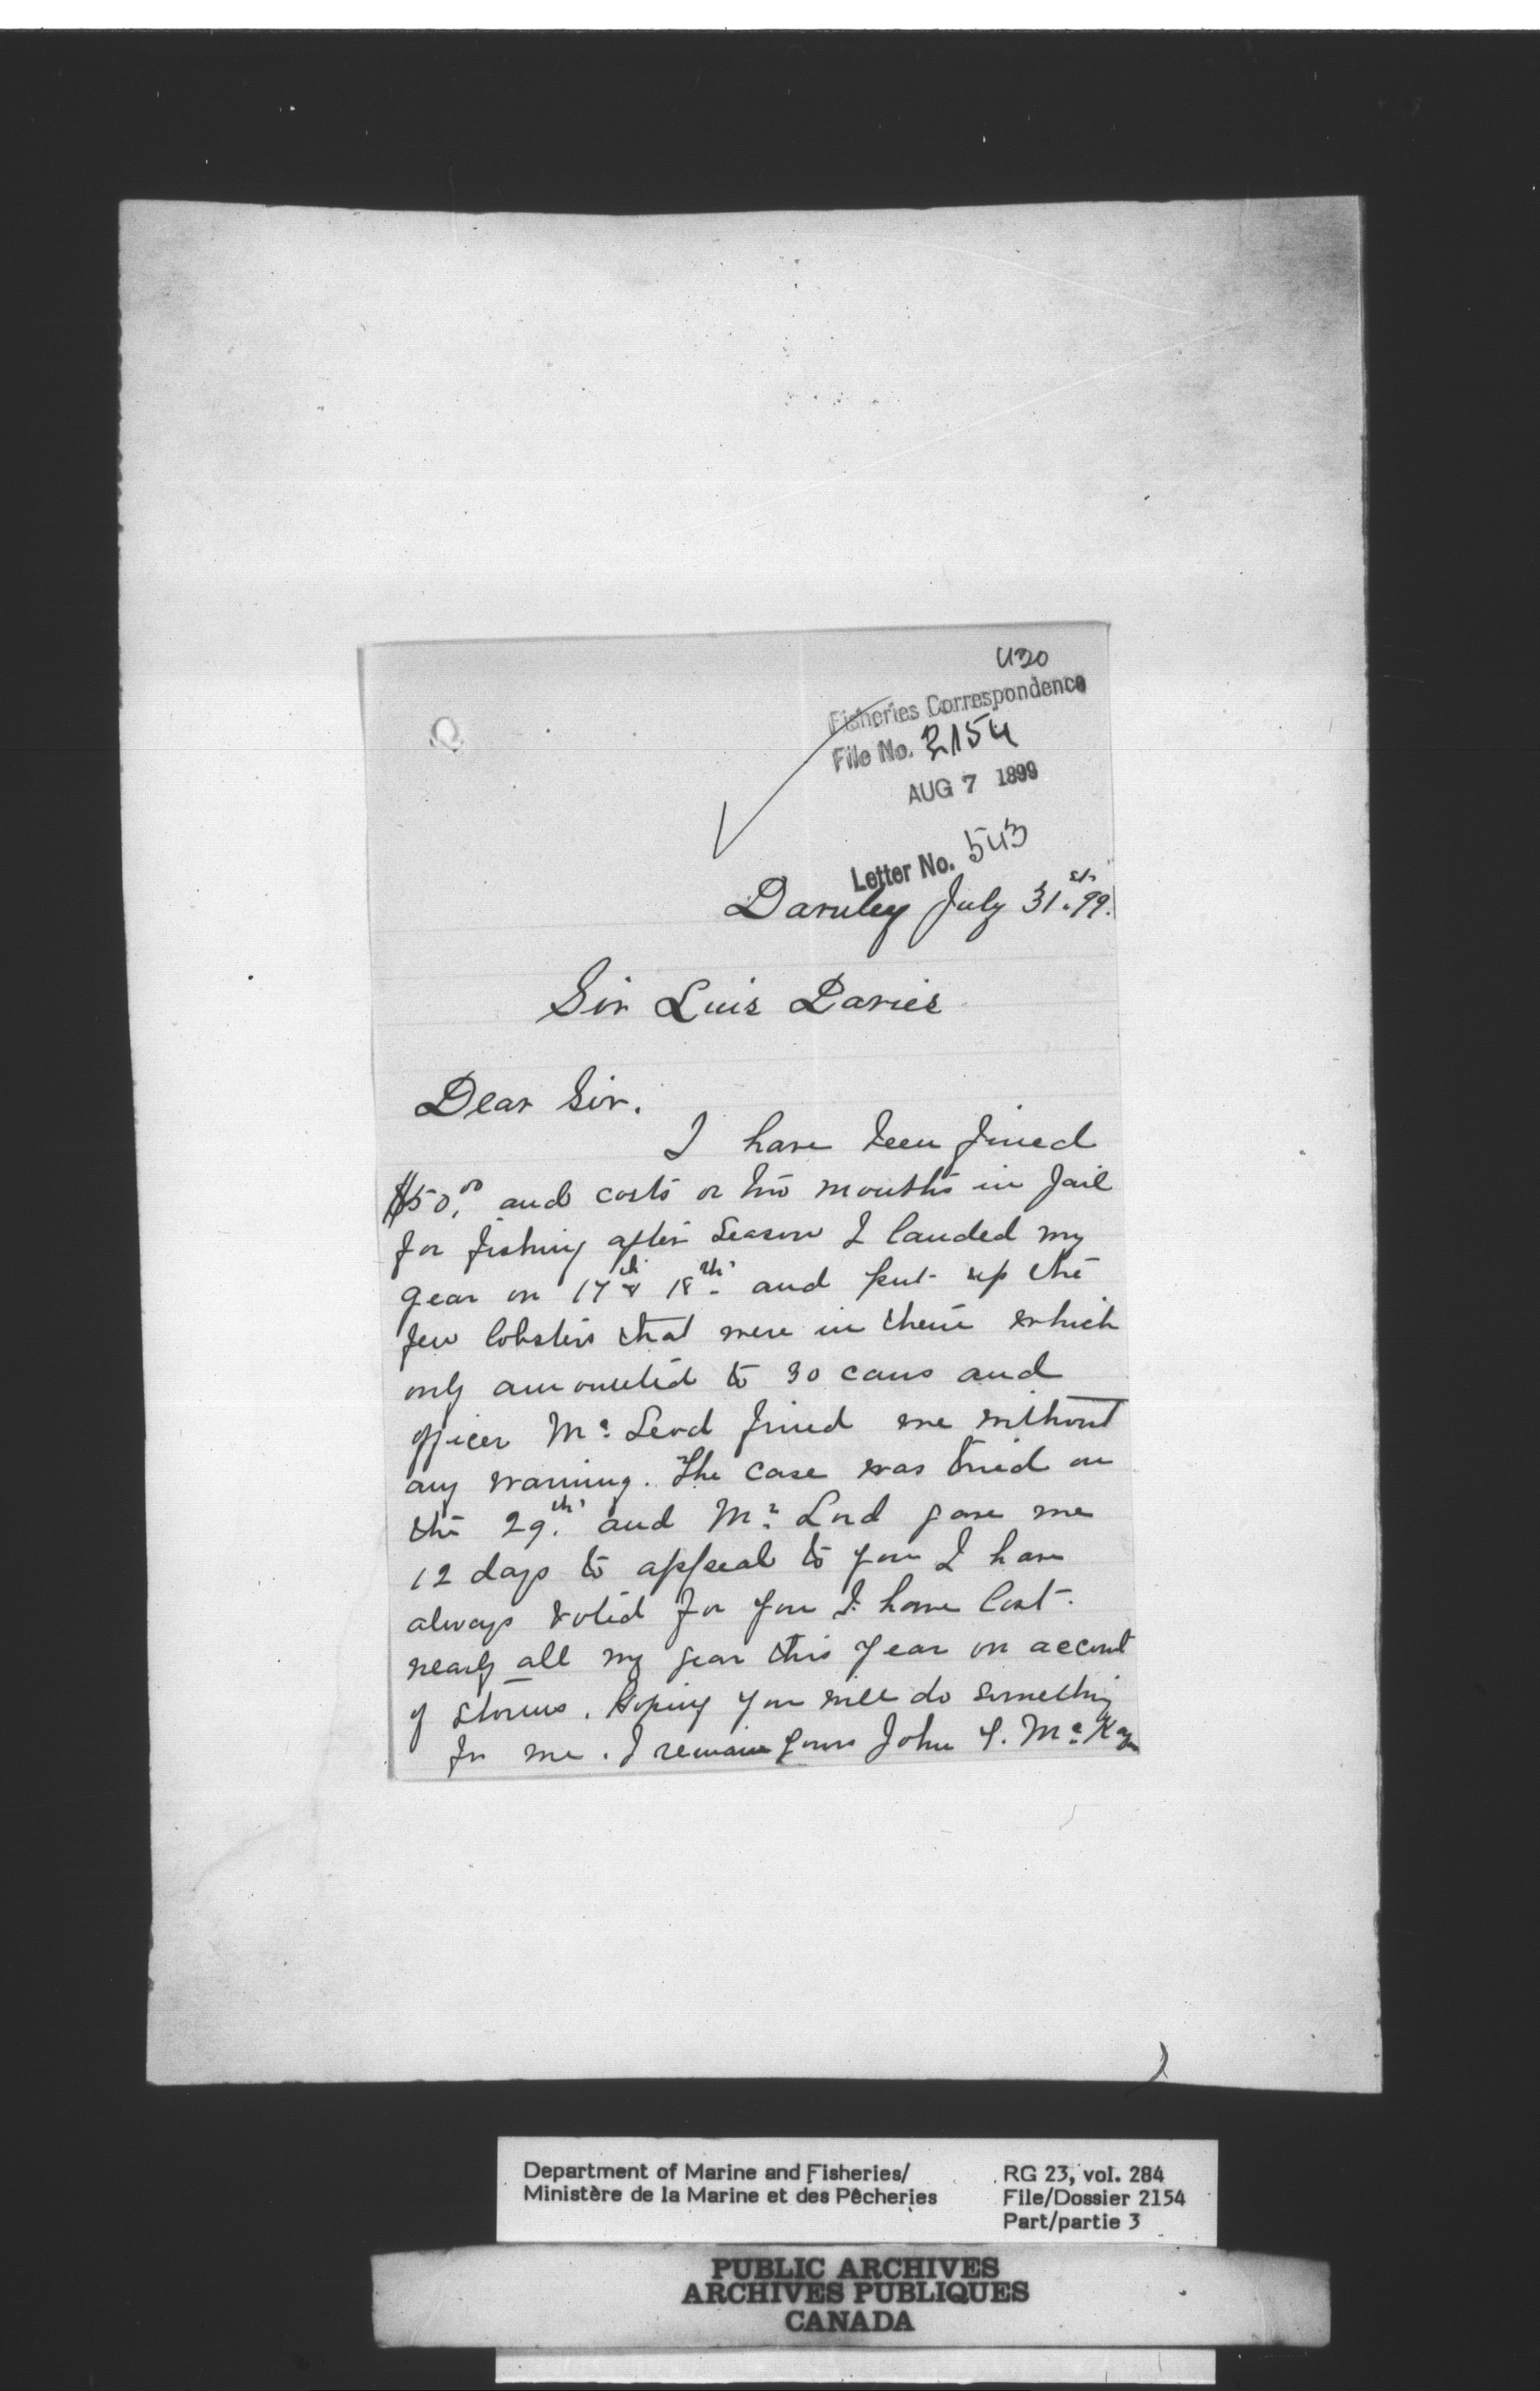 430
Fisheries Correspondence
File No. 2154
AUG 7 1899
Letter No. 543
Darnley July 31st. 99.
Sir Luis Davies
Dear Sir.
I have been fined
$50.00 and costs or two months in Jail
for fishing after Season I landed my
gear on 17th & 18th and put up the
few lobsters that were in them which
only amounted to 30 cans and
officer Mc Leod fined me without
any warning. The case was tried on
the 29th and Mr Lord gave me
12 days to appeal to you I have
always voted for you I have lost
nearly all my gear this year on account
of storms. Hoping you will do something
for me. I remain yours John McKay
Department of Marine and Fisheries/
Ministère de la Marine et des Pêcheries
RG 23, vol. 284
File/Dossier 2154
Part/partie 3
PUBLIC ARCHIVES
ARCHIVES PUBLIQUES
CANADA